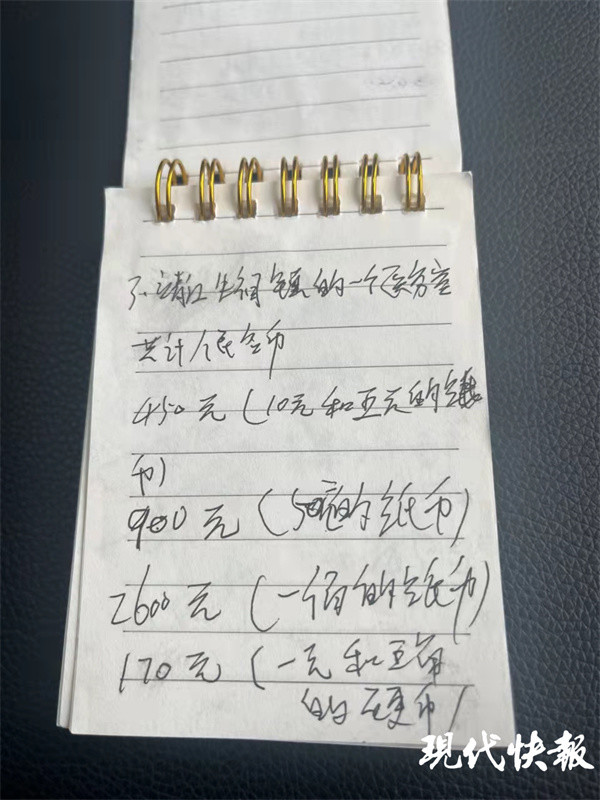 3、靖江生祠镇的一个医务室
共计人民币
450元(10元和五元的纸
币)
900元(50元的纸币)
2600元(一百的纸币)
170元(一元和五角
的硬币)
現代快報